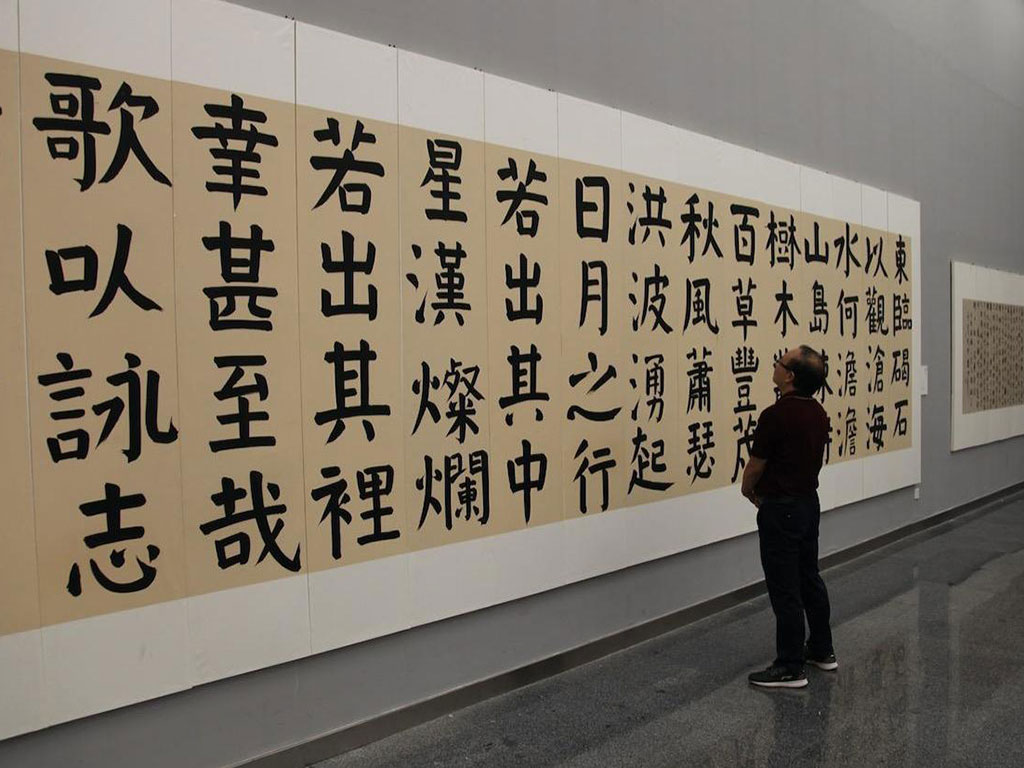 東臨碣石
以觀滄海
水何澹澹
山島
樹木
百草豐茂
秋風蕭瑟
洪波湧起
日月之行
若出其中
星漢燦爛
若出其裡
幸甚至哉
歌以詠志